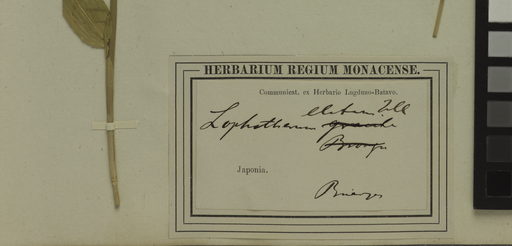 HERBARIUM REGIUM MONACENSE.
Communicat. ex Herbario Lugduno-Batavo.
elatum Zoll
Lophatherum gracile
Brongn
Japonia.